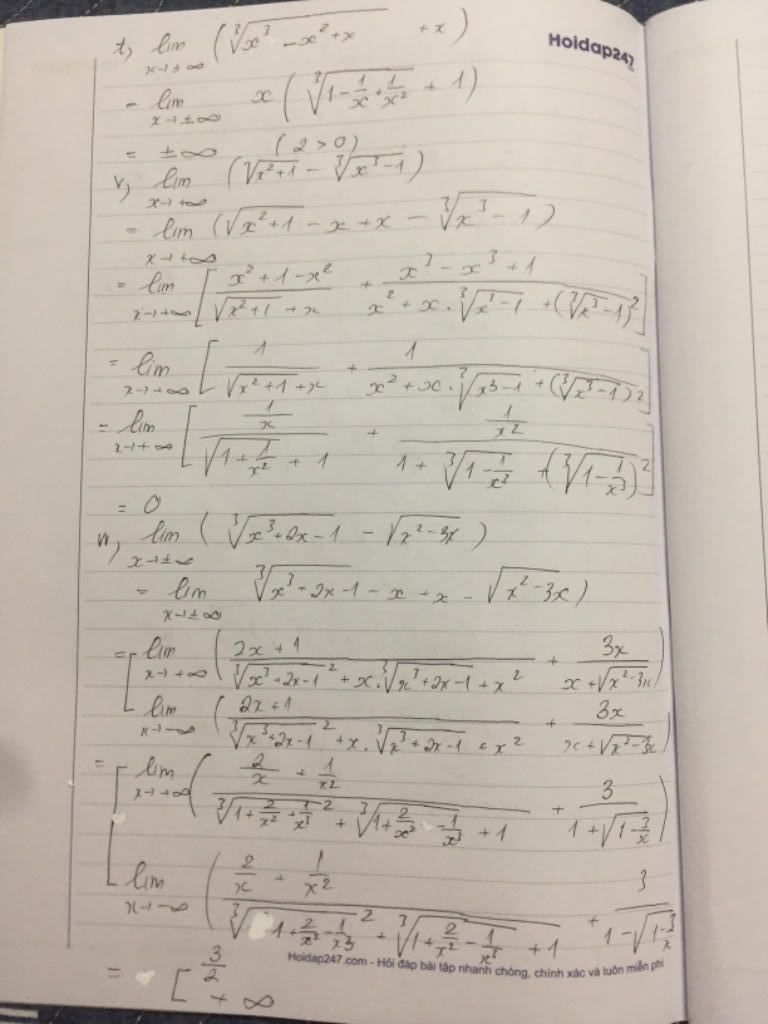 t, lim x→±∞ (∛(x³ - x² + x) + x)
Hoidap247
= lim x→±∞ x (∛(1 - 1/x + 1/x²) + 1)
= ±∞ (2 > 0)
v, lim x→+∞ (√(x²+1) - ∛(x³-1))
= lim x→+∞ (√(x²+1) - x + x - ∛(x³-1))
= lim x→+∞ [(x²+1-x²)/(√(x²+1) + x) + (x³ - x³ + 1)/(x² + x.∛(x³-1) + (∛(x³-1))²)]
= lim x→+∞ [1/(√(x²+1) + x) + 1/(x² + x.∛(x³-1) + (∛(x³-1))²)]
= lim x→+∞ [(1/x)/(√(1+1/x²) + 1) + (1/x²)/(1 + ∛(1-1/x³) + (∛(1-1/x³))²)]
= 0
w, lim x→±∞ (∛(x³+2x-1) - √(x²-3x))
= lim x→±∞ ∛(x³+2x-1) - x + x - √(x²-3x))
= [ lim x→+∞ ((2x+1)/(∛(x³+2x-1)² + x.∛(x³+2x-1) + x²) + 3x/(x+√(x²-3x)))
lim x→-∞ ((2x+1)/(∛(x³+2x-1)² + x.∛(x³+2x-1) + x²) + 3x/(x+√(x²-3x)))
= [ lim x→+∞ ((2/x + 1/x²)/(∛(1+2/x²+1/x³)² + ∛(1+2/x²-1/x³) + 1) + 3/(1+√(1-3/x)))
lim x→-∞ ((2/x + 1/x²)/(∛(1+2/x²-1/x³)² + ∛(1+2/x²-1/x³) + 1) + 3/(1-√(1-3/x)
Hoidap247.com - Hỏi đáp bài tập nhanh chóng, chính xác và luôn miễn phí
= [ 3/2
+∞